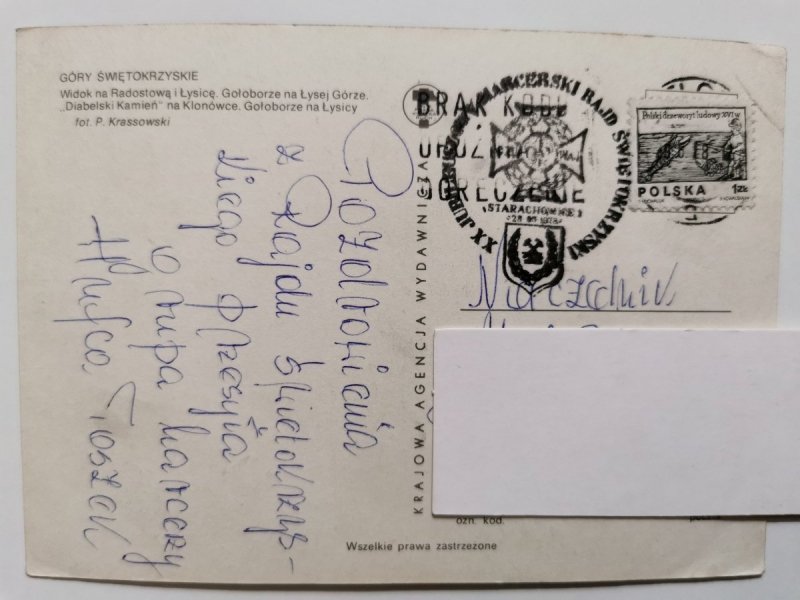 GÓRY ŚWIĘTOKRZYSKIE
Widok na Radostową i Łysicę. Gołoborze na Łysej Górze.
„Diabelski Kamień" na Klonówce. Gołoborze na Łysicy
fot. P. Krassowski
Pozdrowienia
z Rajdu Świętokrzys-
kiego przesyła
grupa harcerzy
Hufca Toszek
KRAJOWA AGENCJA WYDAWNICZA
BRAK KODU
OPÓŹNIA
DORĘCZENIE
XX JUBILEUSZOWY HARCERSKI RAJD ŚWIĘTOKRZYSKI
STARACHOWICE 1
Polski drzeworyt ludowy XVI w
POLSKA 1zł
Naczelnik
ozn. kod.
Wszelkie prawa zastrzeżone